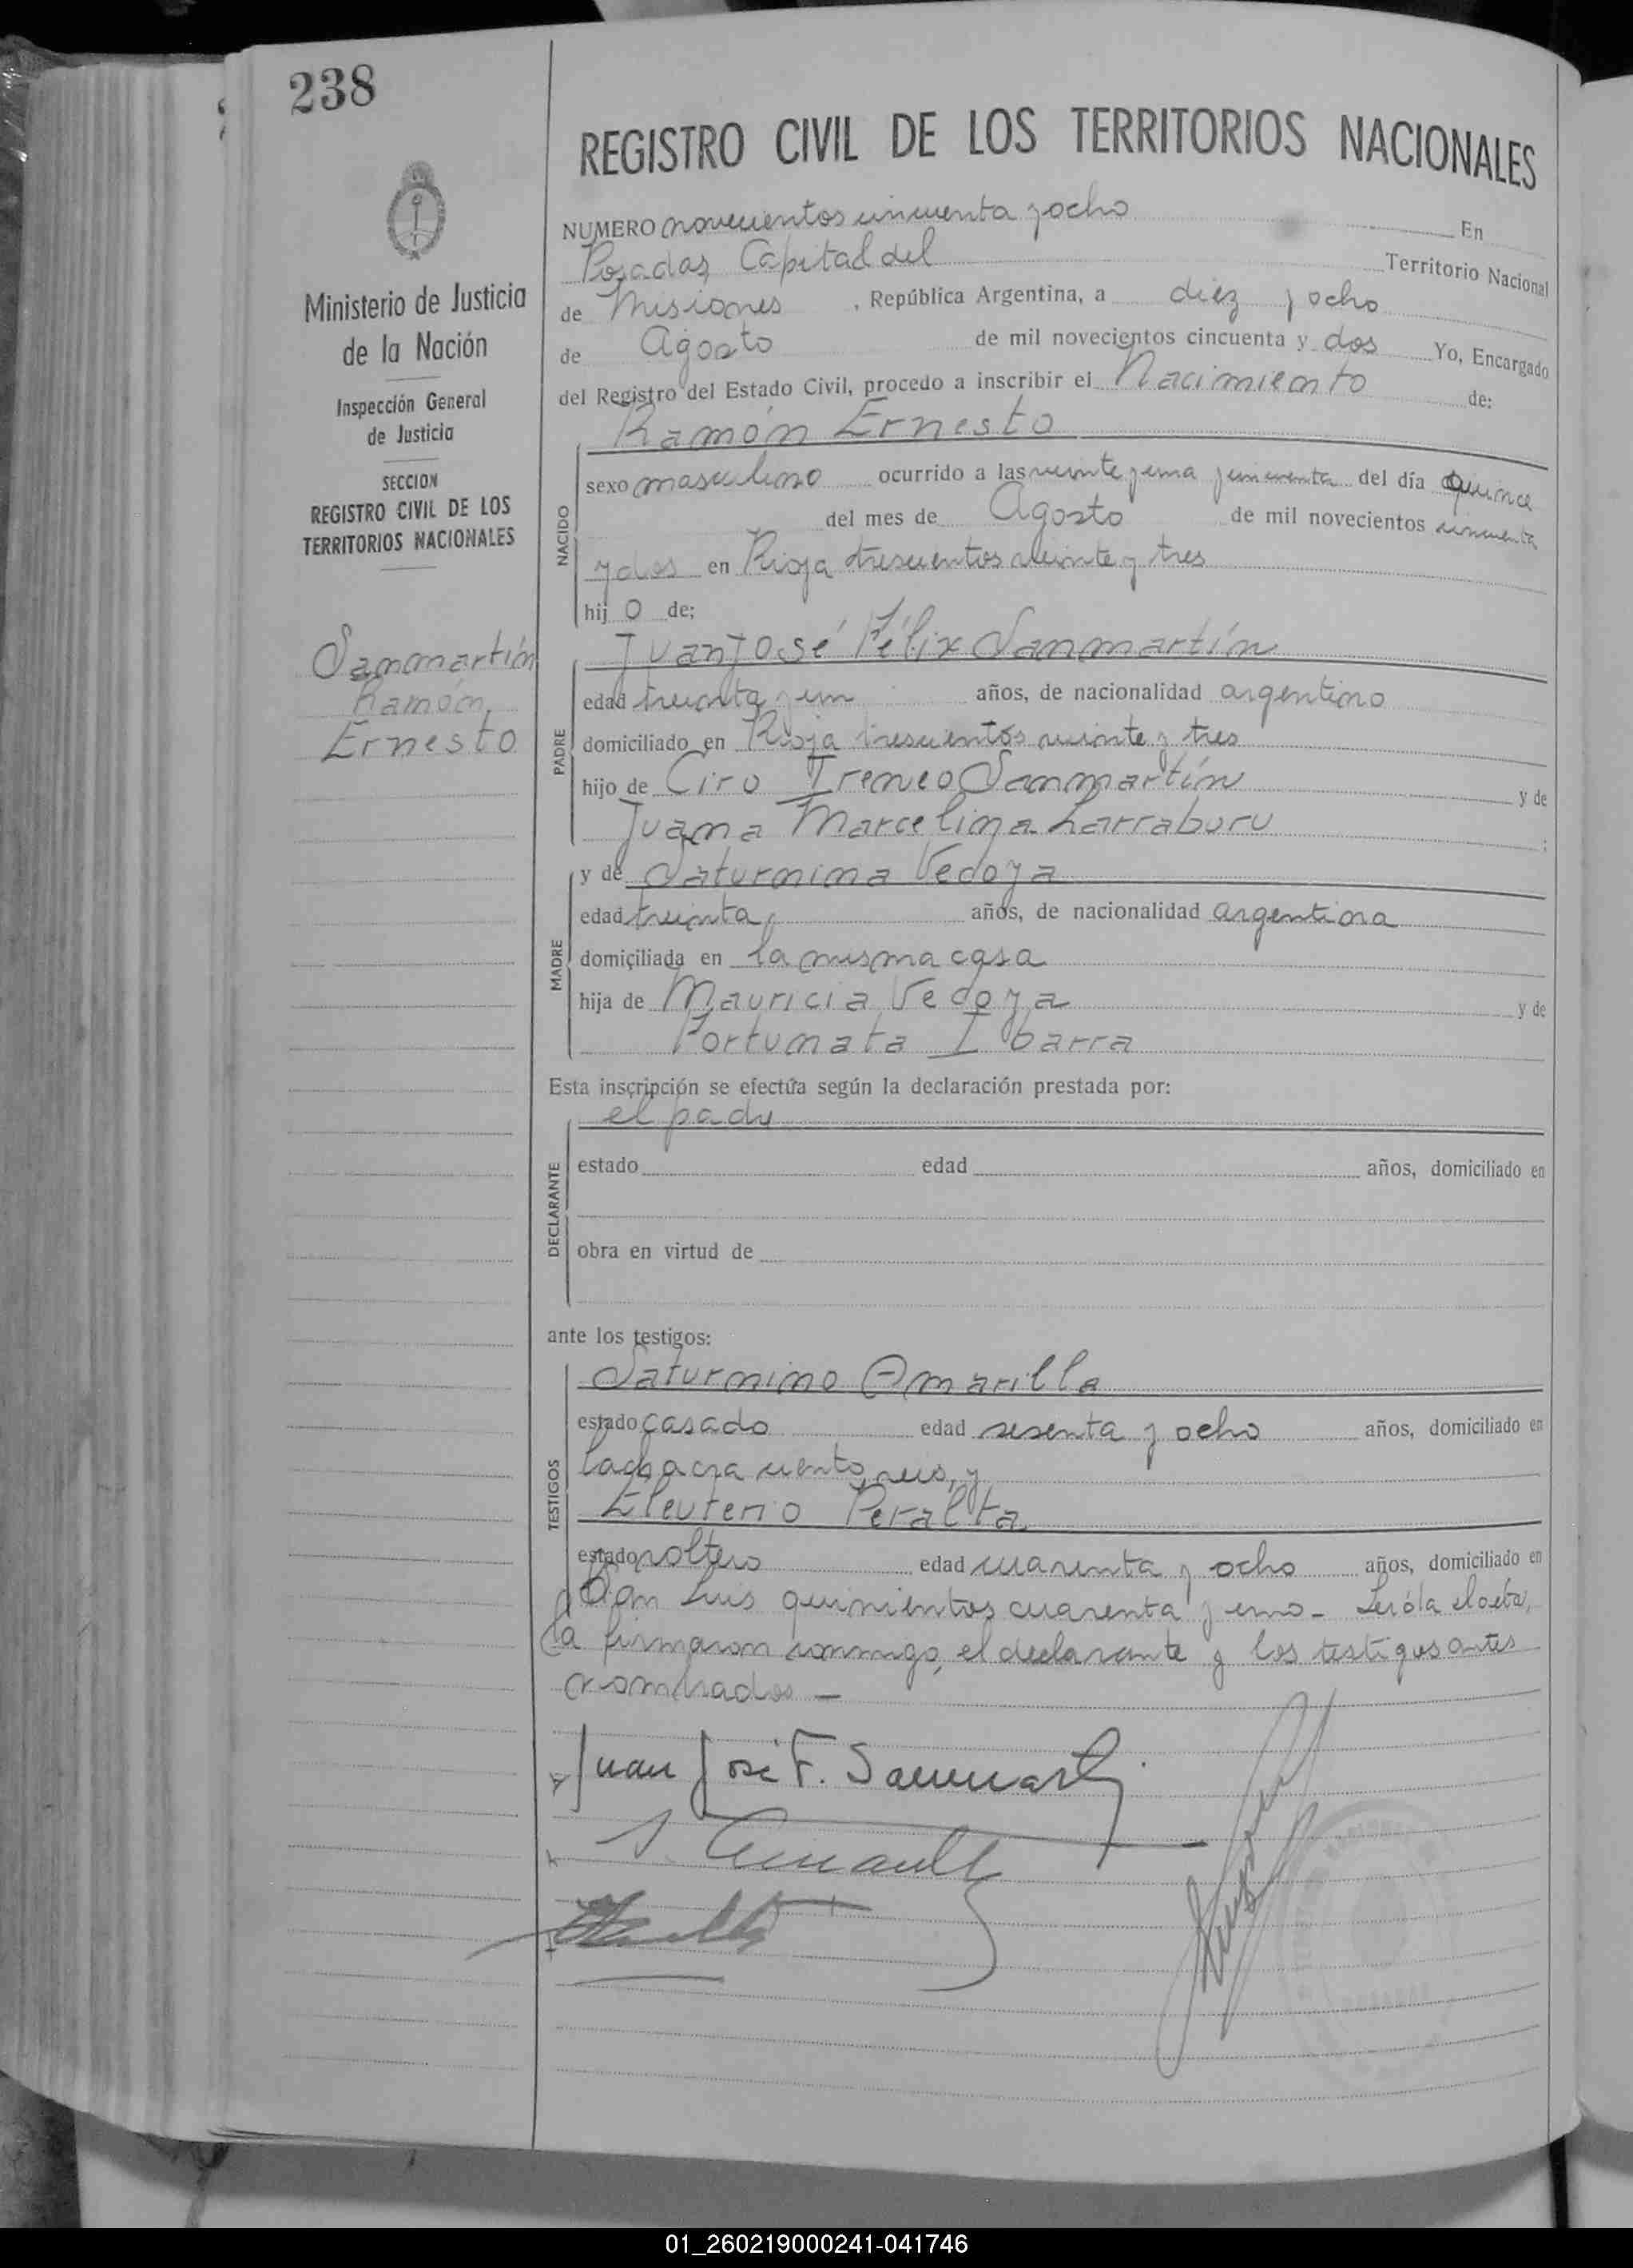 238
REGISTRO CIVIL DE LOS TERRITORIOS NACIONALES
Ministerio de Justicia
de la Nación
Inspección General
de Justicia
SECCION
REGISTRO CIVIL DE LOS
TERRITORIOS NACIONALES
Sanmartín
Ramón
Ernesto
NUMERO novecientos cincuenta y ocho En
Posadas, Capital del Territorio Nacional
de Misiones, República Argentina, a diez y ocho
de Agosto de mil novecientos cincuenta y dos Yo, Encargado
del Registro del Estado Civil, procedo a inscribir el Nacimiento de:
Ramón Ernesto
NACIDO
sexo masculino ocurrido a las veinte y una y cincuenta del día quince
del mes de Agosto de mil novecientos cincuenta
y dos en Rioja trescientos veinte y tres
hij o de;
Juan José Félix Sanmartín
PADRE
edad treinta y un años, de nacionalidad argentino
domiciliado en Rioja trescientos veinte y tres
hijo de Ciro Ireneo Sanmartín y de
Juana Marcelina Larraburu ;
y de Saturnina Vedoya
MADRE
edad treinta años, de nacionalidad argentina
domiciliada en la misma casa
hija de Mauricia Vedoya y de
Fortunata Ibarra
Esta inscripción se efectúa según la declaración prestada por:
el padre
DECLARANTE
estado edad años, domiciliado en
obra en virtud de
ante los testigos:
Saturnino Amarilla
TESTIGOS
estado casado edad sesenta y ocho años, domiciliado en
la chacra ciento seis, y
Eleuterio Peralta
estado soltero edad cuarenta y ocho años, domiciliado en
San Luis quinientos cuarenta y uno - Leída el acta,
la firmaron conmigo, el declarante y los testigos antes
nombrados -
Juan José F. Sanmartín
01_260219000241-041746